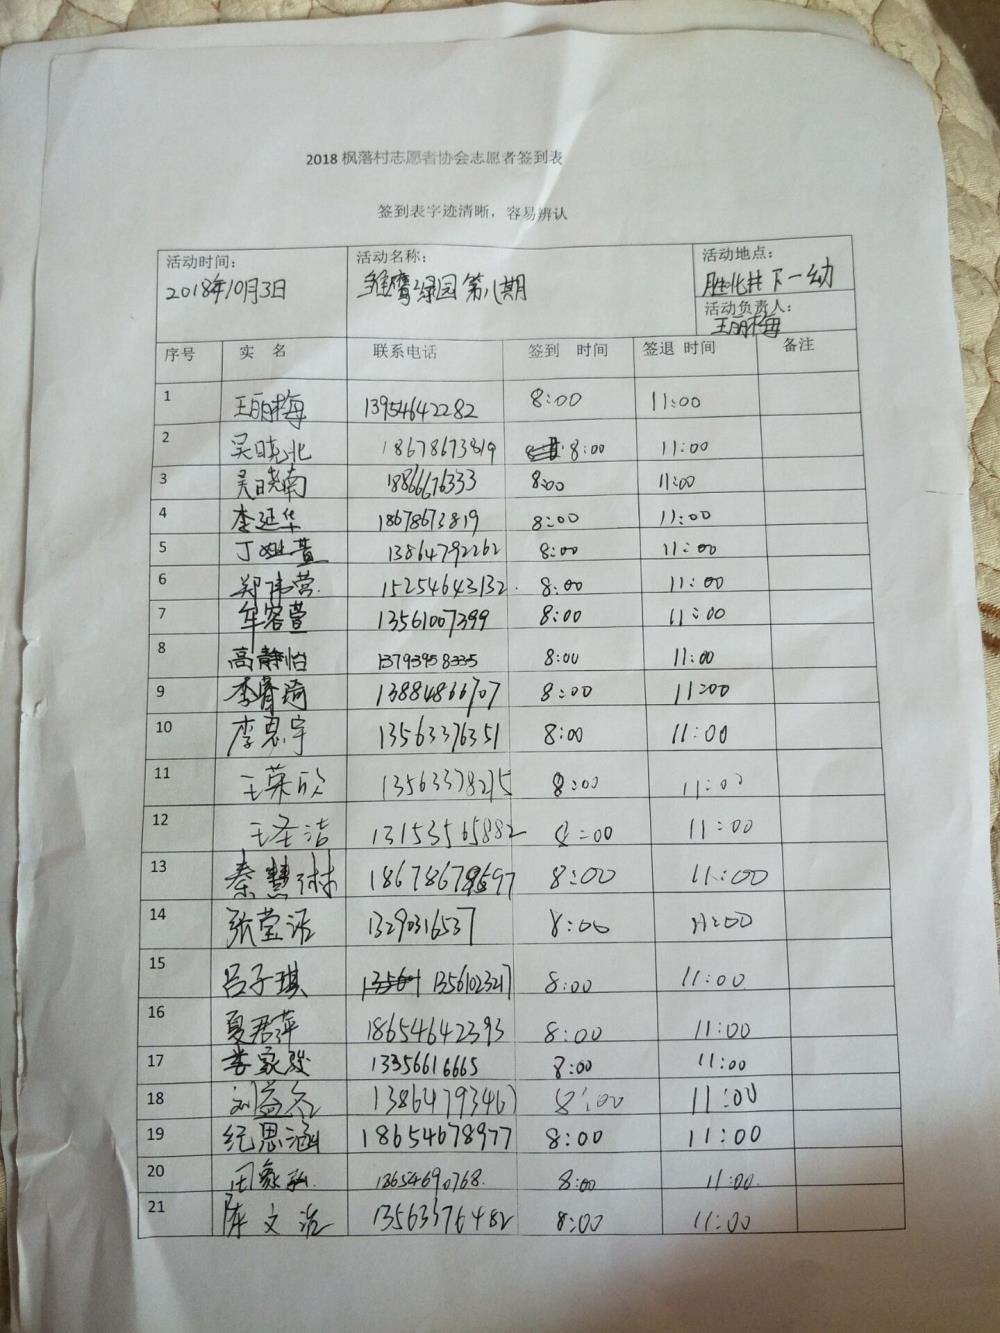 2018 枫落村志愿者协会志愿者签到表
签到表字迹清晰，容易辨认
活动时间： 活动名称： 活动地点：
2018年10月3日 雏鹰绿园第八期 胜北社下一幼
活动负责人：
王丽梅
序号 实 名 联系电话 签到 时间 签退 时间 备注
1 王丽梅 13954642282 8:00 11:00
2 吴晓北 18678673819 8:00 11:00
3 吴晓南 1886676333 8:00 11:00
4 李延华 18678673819 8:00 11:00
5 丁 13864792262 8:00 11:00
6 郑伟营 15254643132 8:00 11:00
7 牟容萱 13561007399 8:00 11:00
8 高静怡 13793958335 8:00 11:00
9 李睿琦 13884866707 8:00 11:00
10 李恩宇 13563376351 8:00 11:00
11 王荣欣 13563378215 8:00 11:00
12 王圣洁 13153565882 8:00 11:00
13 秦慧琳 8:00 11:00
14 张莹 13290316537 8:00 11:00
15 吕子琪 13561023217 8:00 11:00
16 夏君萍 18654642393 8:00 11:00
17 李家骏 13356616665 8:00 11:00
18 刘益 13864793467 8:00 11:00
19 纪思涵 18654678977 8:00 11:00
20 田 18654690768 8:00 11:00
21 陈文 13563376482 8:00 11:00